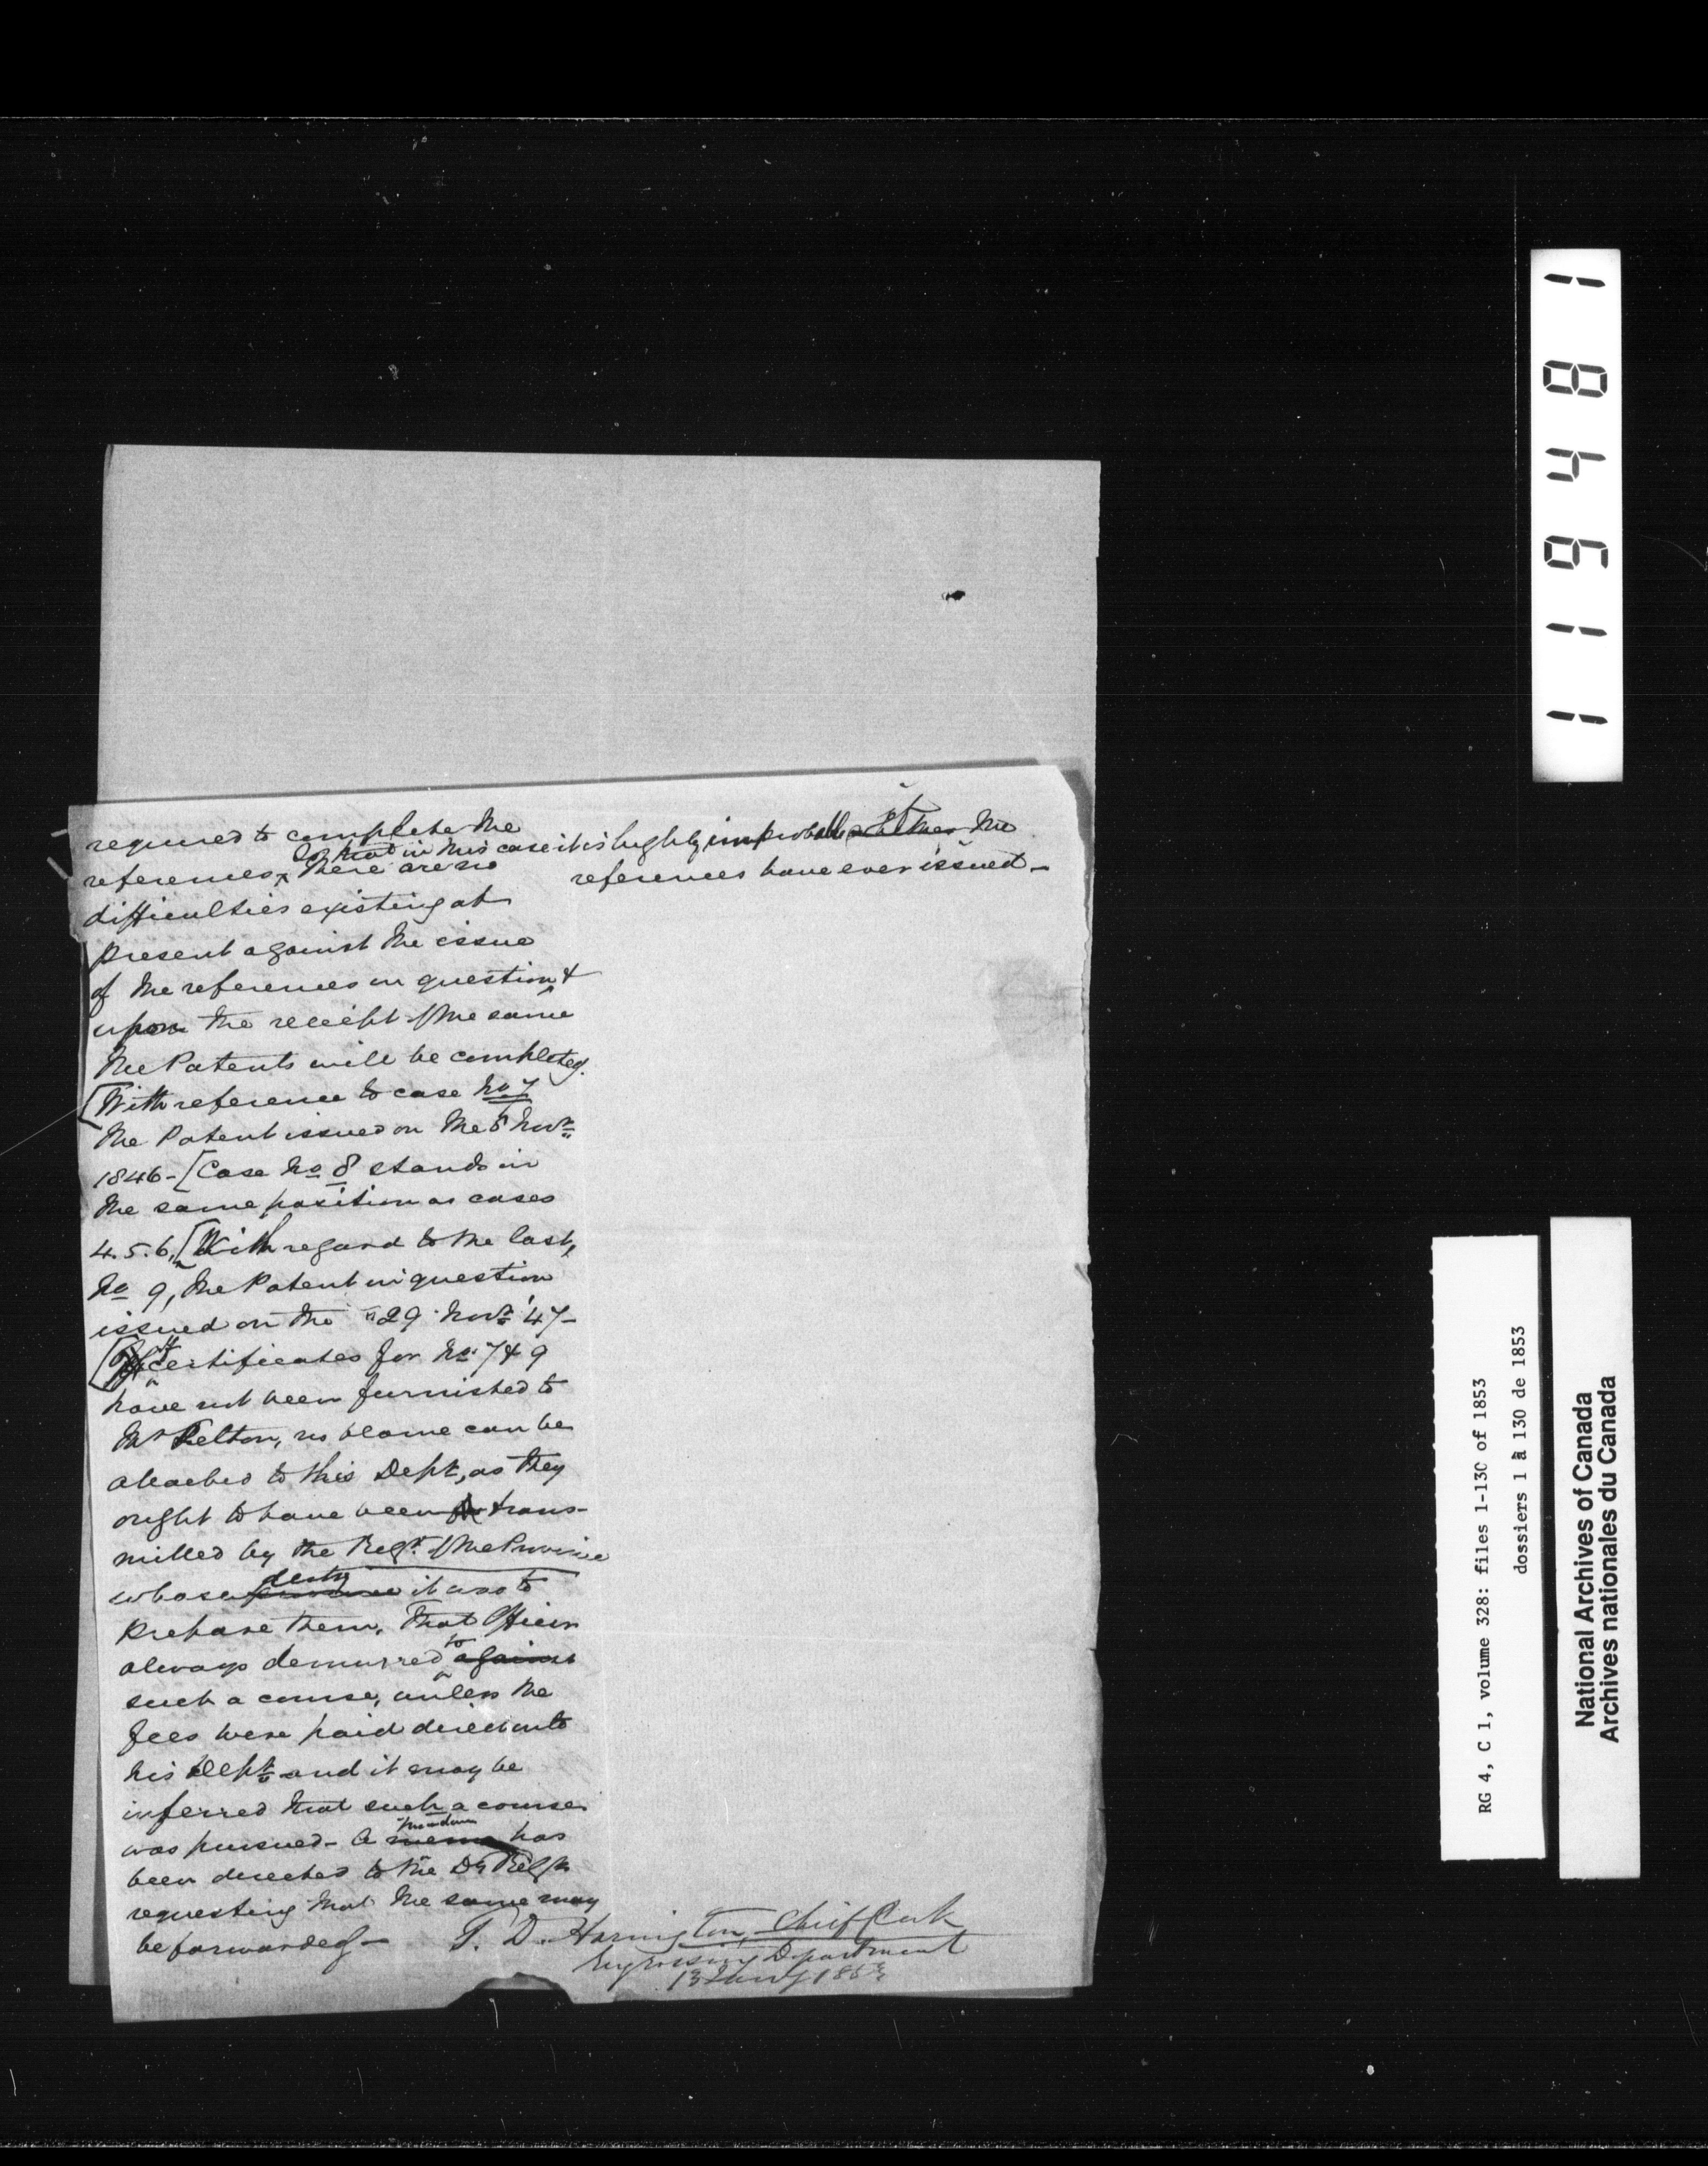 required to complete the
So that in this case it is highly improbable that the
references, There are no
references have ever issued -
difficulties existing at
present against the issue
of the references in question &
upon the receipt of the same
the Patents will be completed.
[With reference to case No 7
the Patent issued on the 5 Novr
1846 - [Case No 8 stands in
the same position as cases
4. 5. 6, [With regard to the last,
No 9, the Patent in question
issued on the 29 Novr '47 -
[If certificates for No 7 & 9
have not been furnished to
Mr Felton, no blame can be
attached to this Dept, as they
ought to have been trans-
mitted by the Regr. of the Province
duty
whose it was to
prepare them. That Officer
to
always demurred against
such a course, unless the
fees were paid direct into
his Dept and it may be
inferred that such a course
was pursued - A memo has
been directed to the Dy Regr
requesting that the same may
be forwarded -
T. D. Harrington, Chief Clerk
Engrossing Department
13 Jany 1853
1 1 9 4 8 1
RG 4, C 1, volume 328: files 1-130 of 1853
dossiers 1 à 130 de 1853
National Archives of Canada
Archives nationales du Canada